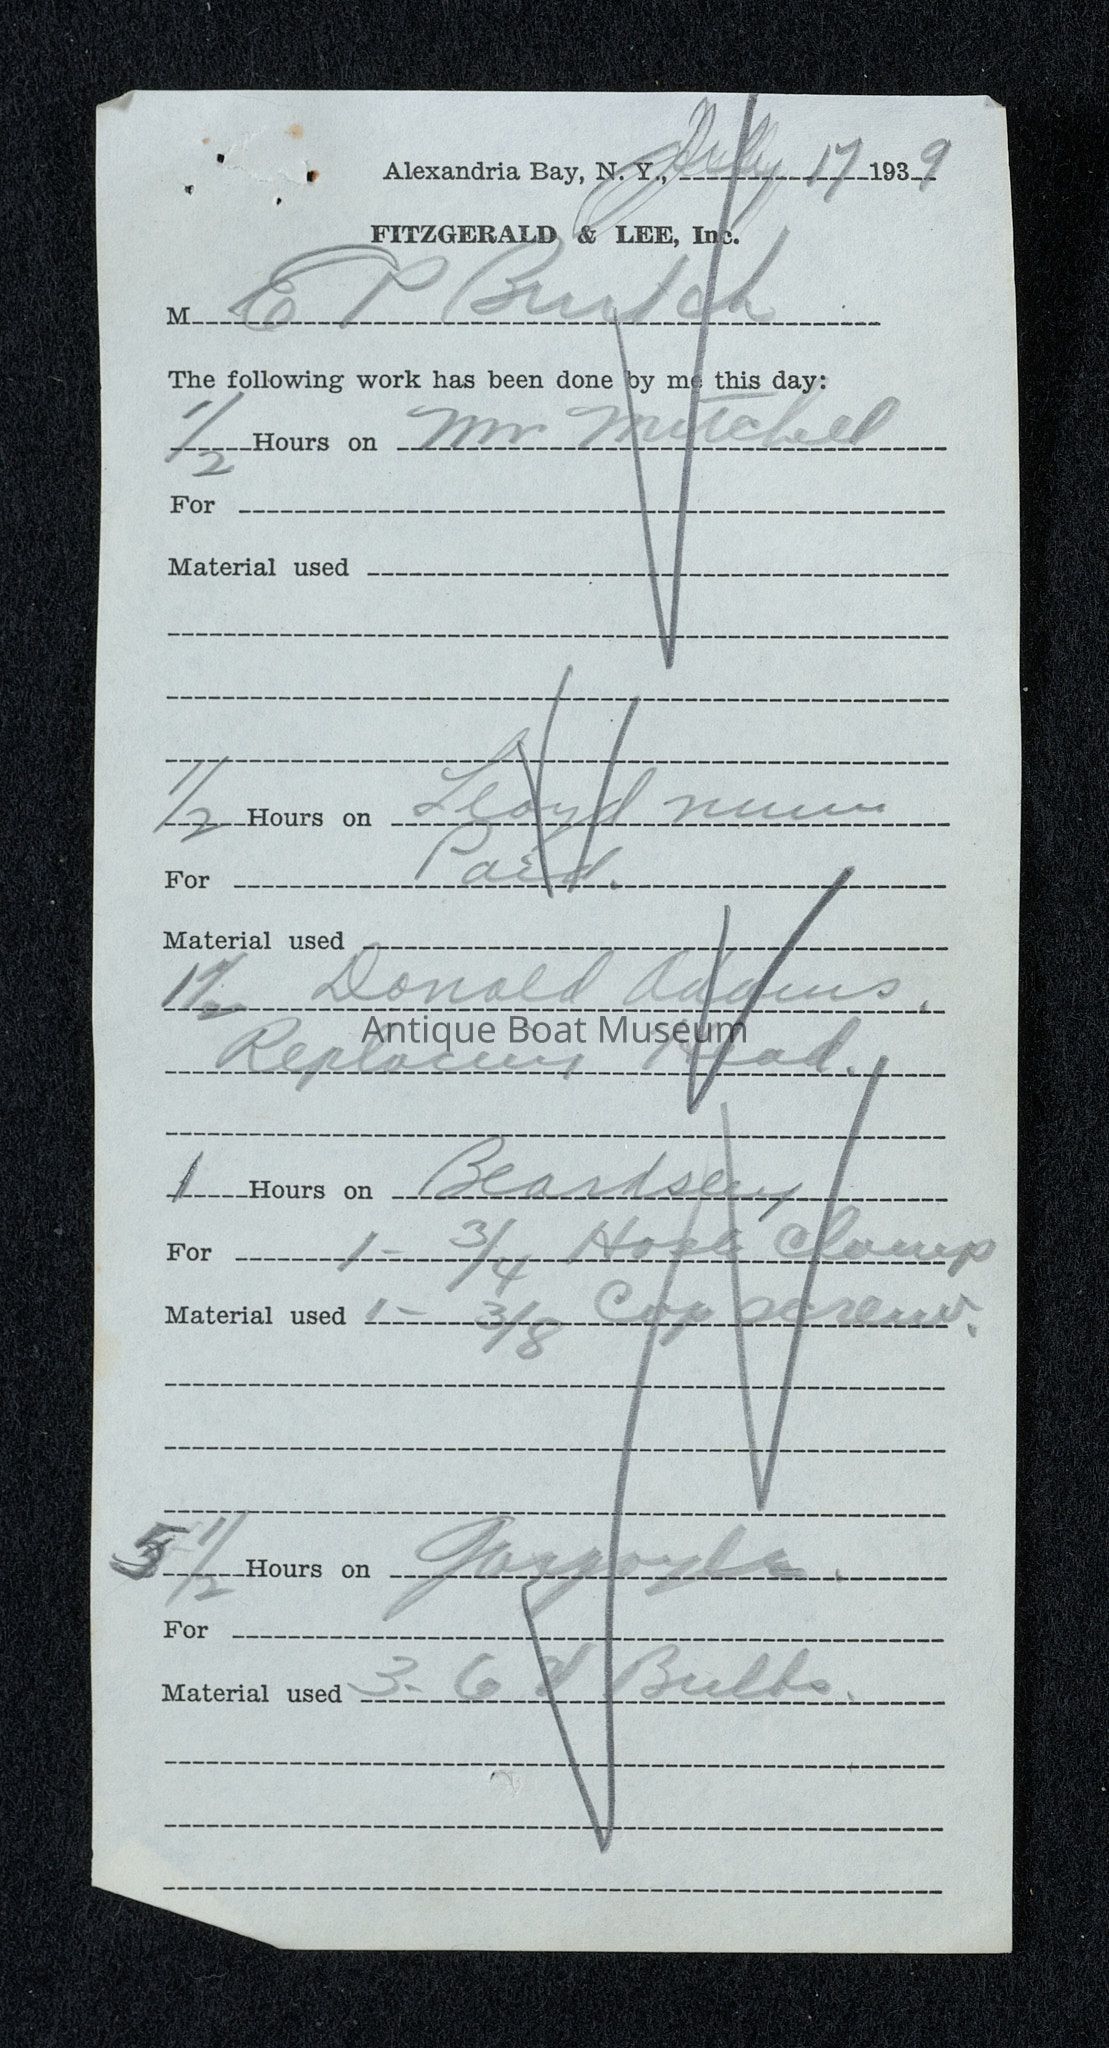 Alexandria Bay, N. Y., July 17 1939
FITZGERALD & LEE, Inc.
M E P Burtch
The following work has been done by me this day:
1/2 Hours on Mr Mitchell
For
Material used
1/2 Hours on Lloyd
For Paid.
Material used
1 1/2 Donald Adams.
Antique Boat Museum
Replacing Head.
1 Hours on Beardsley
For 1- 3/4 Hose Clamp
Material used 1- 3/8 Cap screw.
5 1/2 Hours on Gargoyle.
For
Material used 3- 6 V Bulbs.